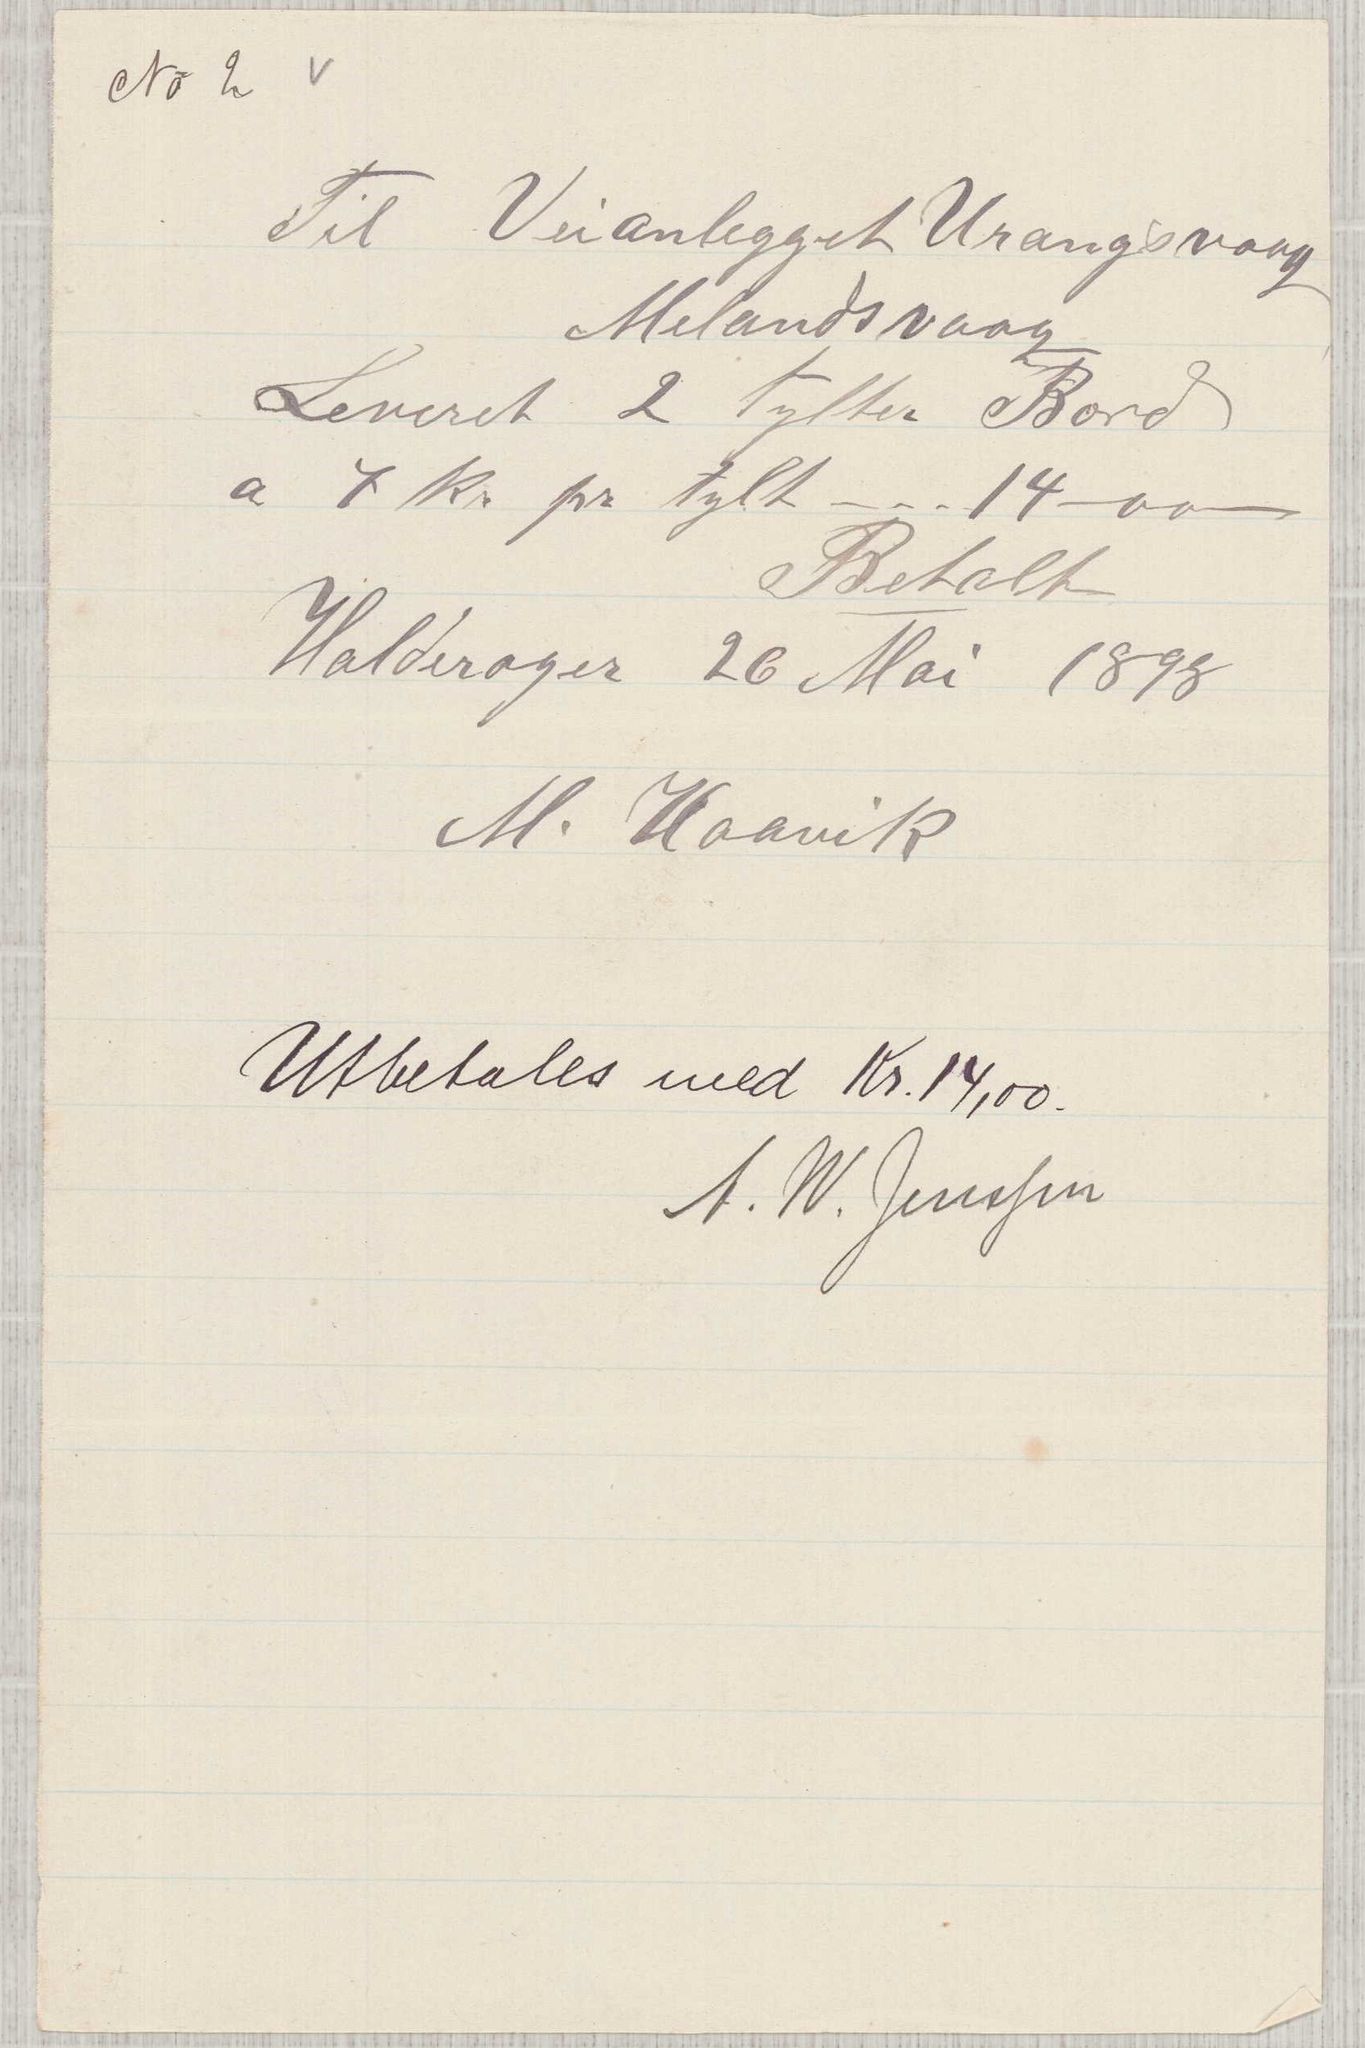 No 2 v
Til Veianlegget Urangsvaag
Melandsvaag
Leveret 2 tylter Bord
a 7 kr pr tylt - - - 14 - 00 -
Betalt
Halderager 26 Mai 1898
M. Haavik
Utbetales med Kr. 14,00.
A. W. Jenssen